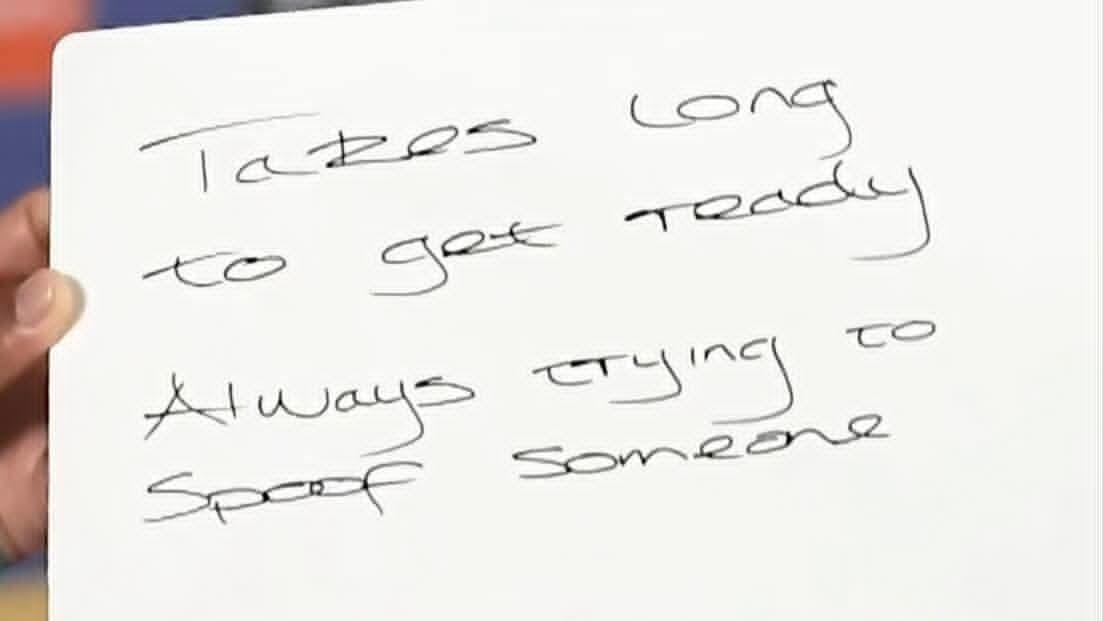 Takes Long
to get ready
Always trying to
Spoof someone